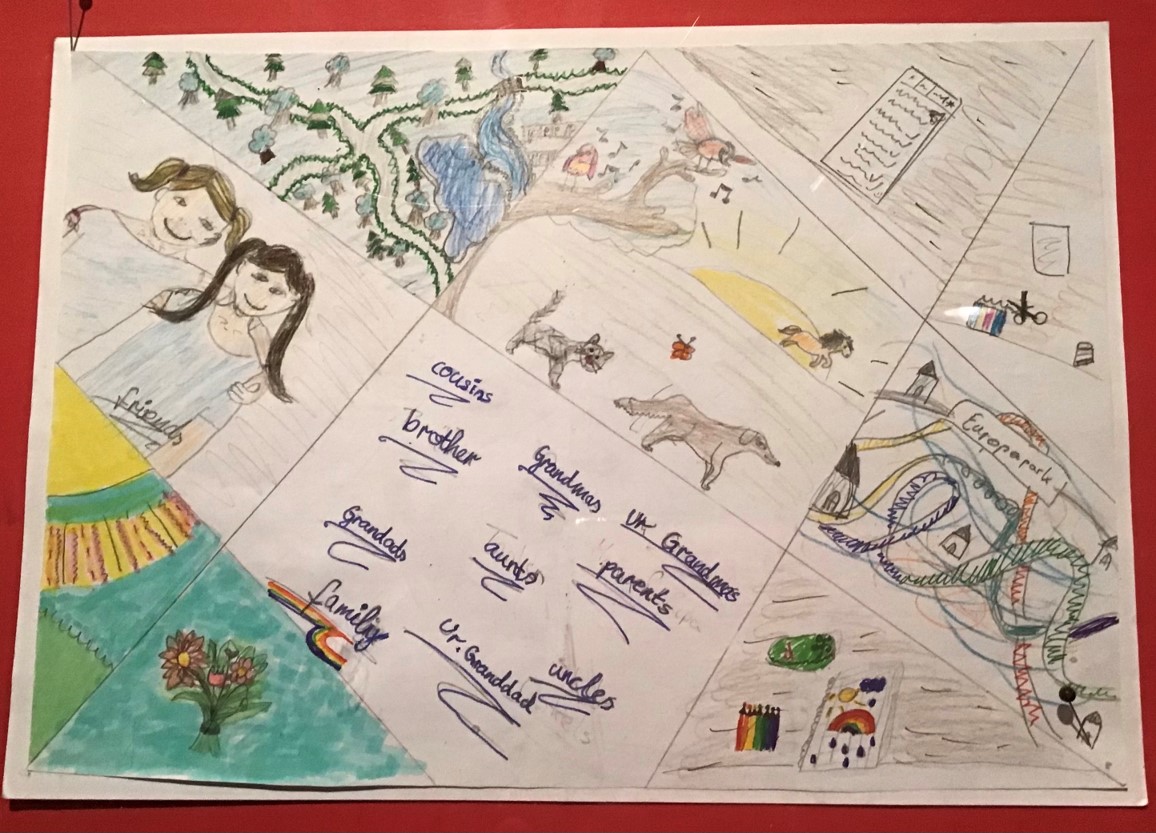 friends
cousins
brother
Grandmas
Ur Grandmas
Grandads
aunts
parents
family
Ur. Granddad
uncles
Europapark